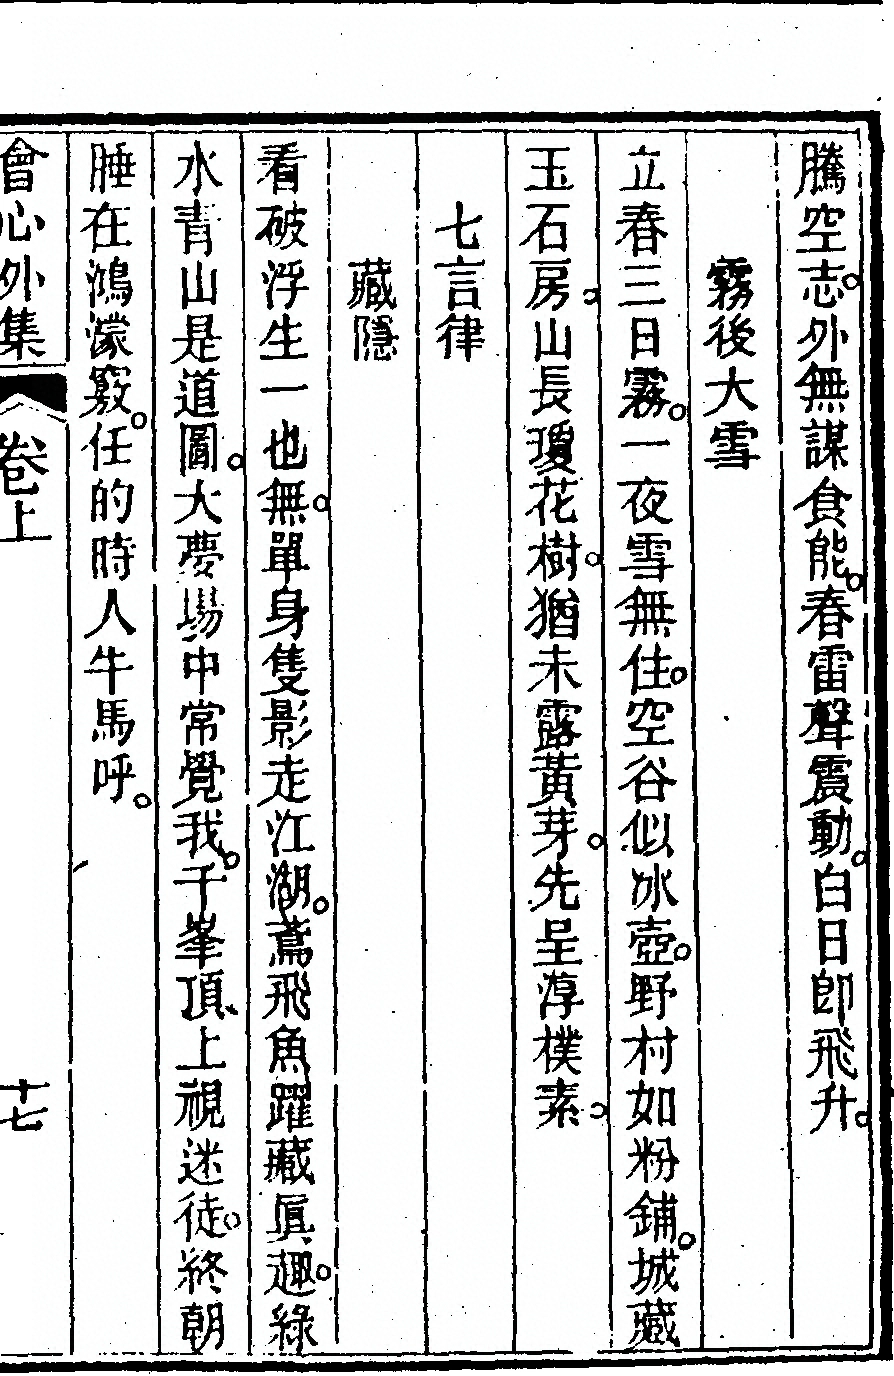 騰空志。外無謀食能。春雷聲震動。白日即飛升。
霧後大雪
立春三日霧。一夜雪無住。空谷似冰壺。野村如粉鋪。城藏
玉石房。山長瓊花樹。猶未露黃芽。先呈淳樸素。
七言律
藏隱
看破浮生一也無。單身隻影走江湖。鳶飛魚躍藏眞趣。綠
水青山是道圖。大夢場中常覺我。千峯頂上視迷徒。終朝
睡在鴻濛竅。任的時人牛馬呼。
會心外集 卷上 十七